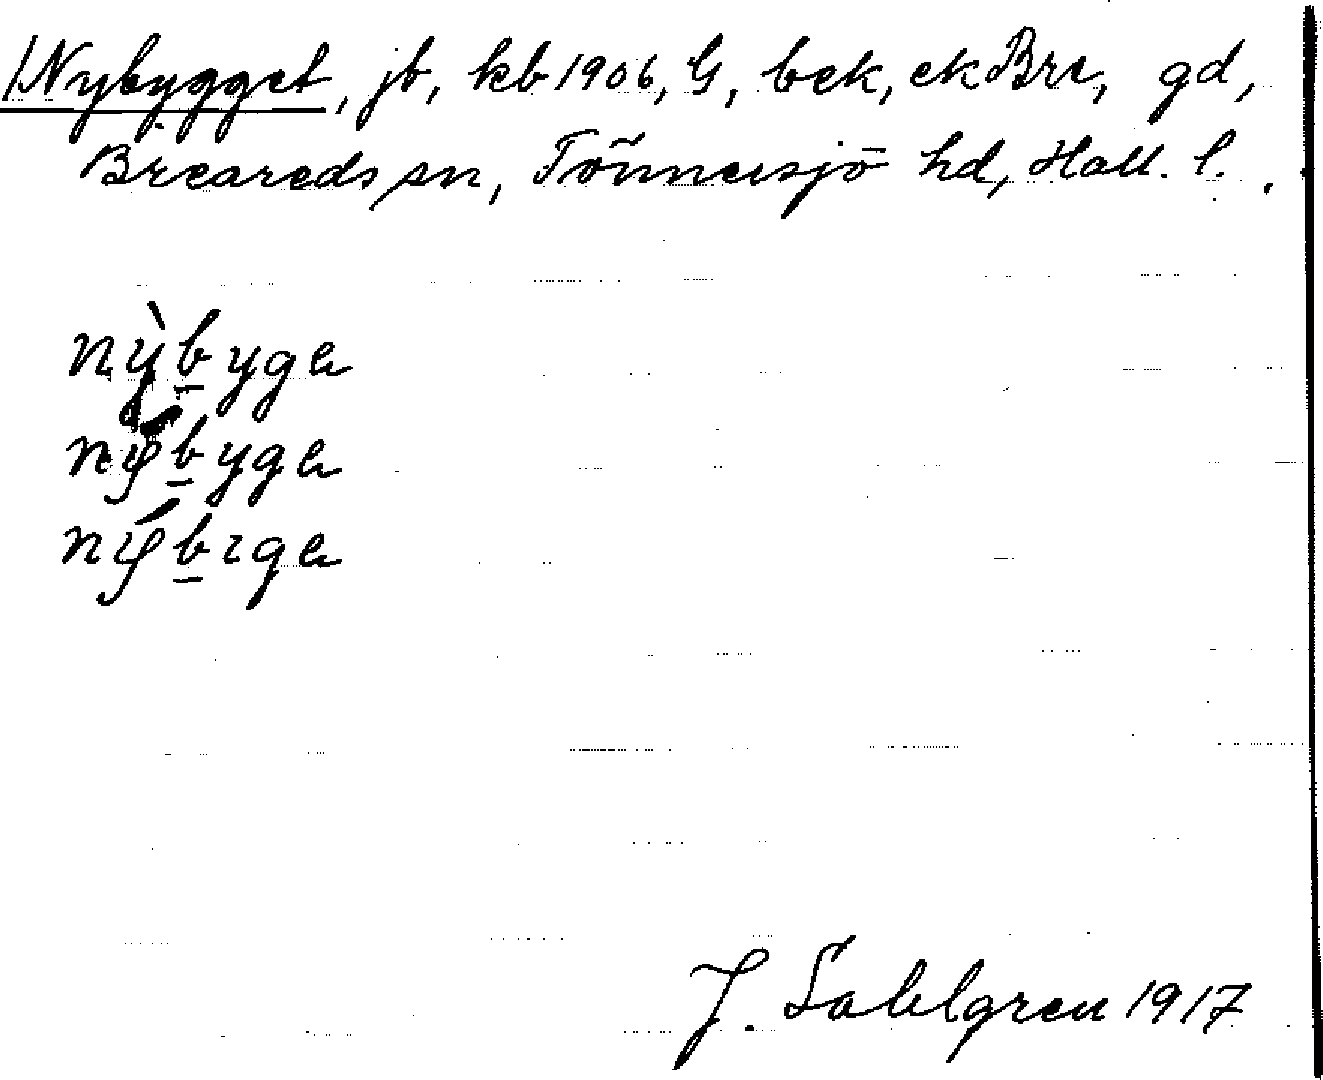 1Nybygget, jb, kb 1906, G, bek, ekBre, gd,
Breareds sn, Tönnersjö hd, Hall. l.
nỳbygə
nýbygə
nýbıgə
J. Sahlgren 1917